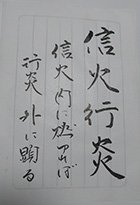 信火行炎
信火内に燃ゆれば
行炎外に顕る